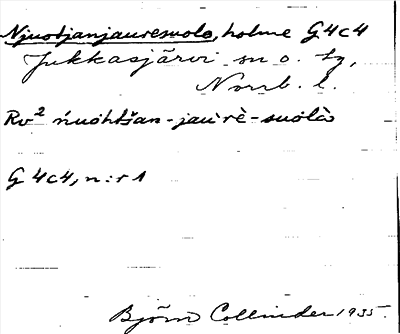 Njuotjanjauresuolo, holme G4c4
Jukkasjärvi sn o. tg,
Norrb. l.
Rv² ńuōhtšan-jaurè-suolò
G 4c4, n:r 1
Björn Collinder 1935.